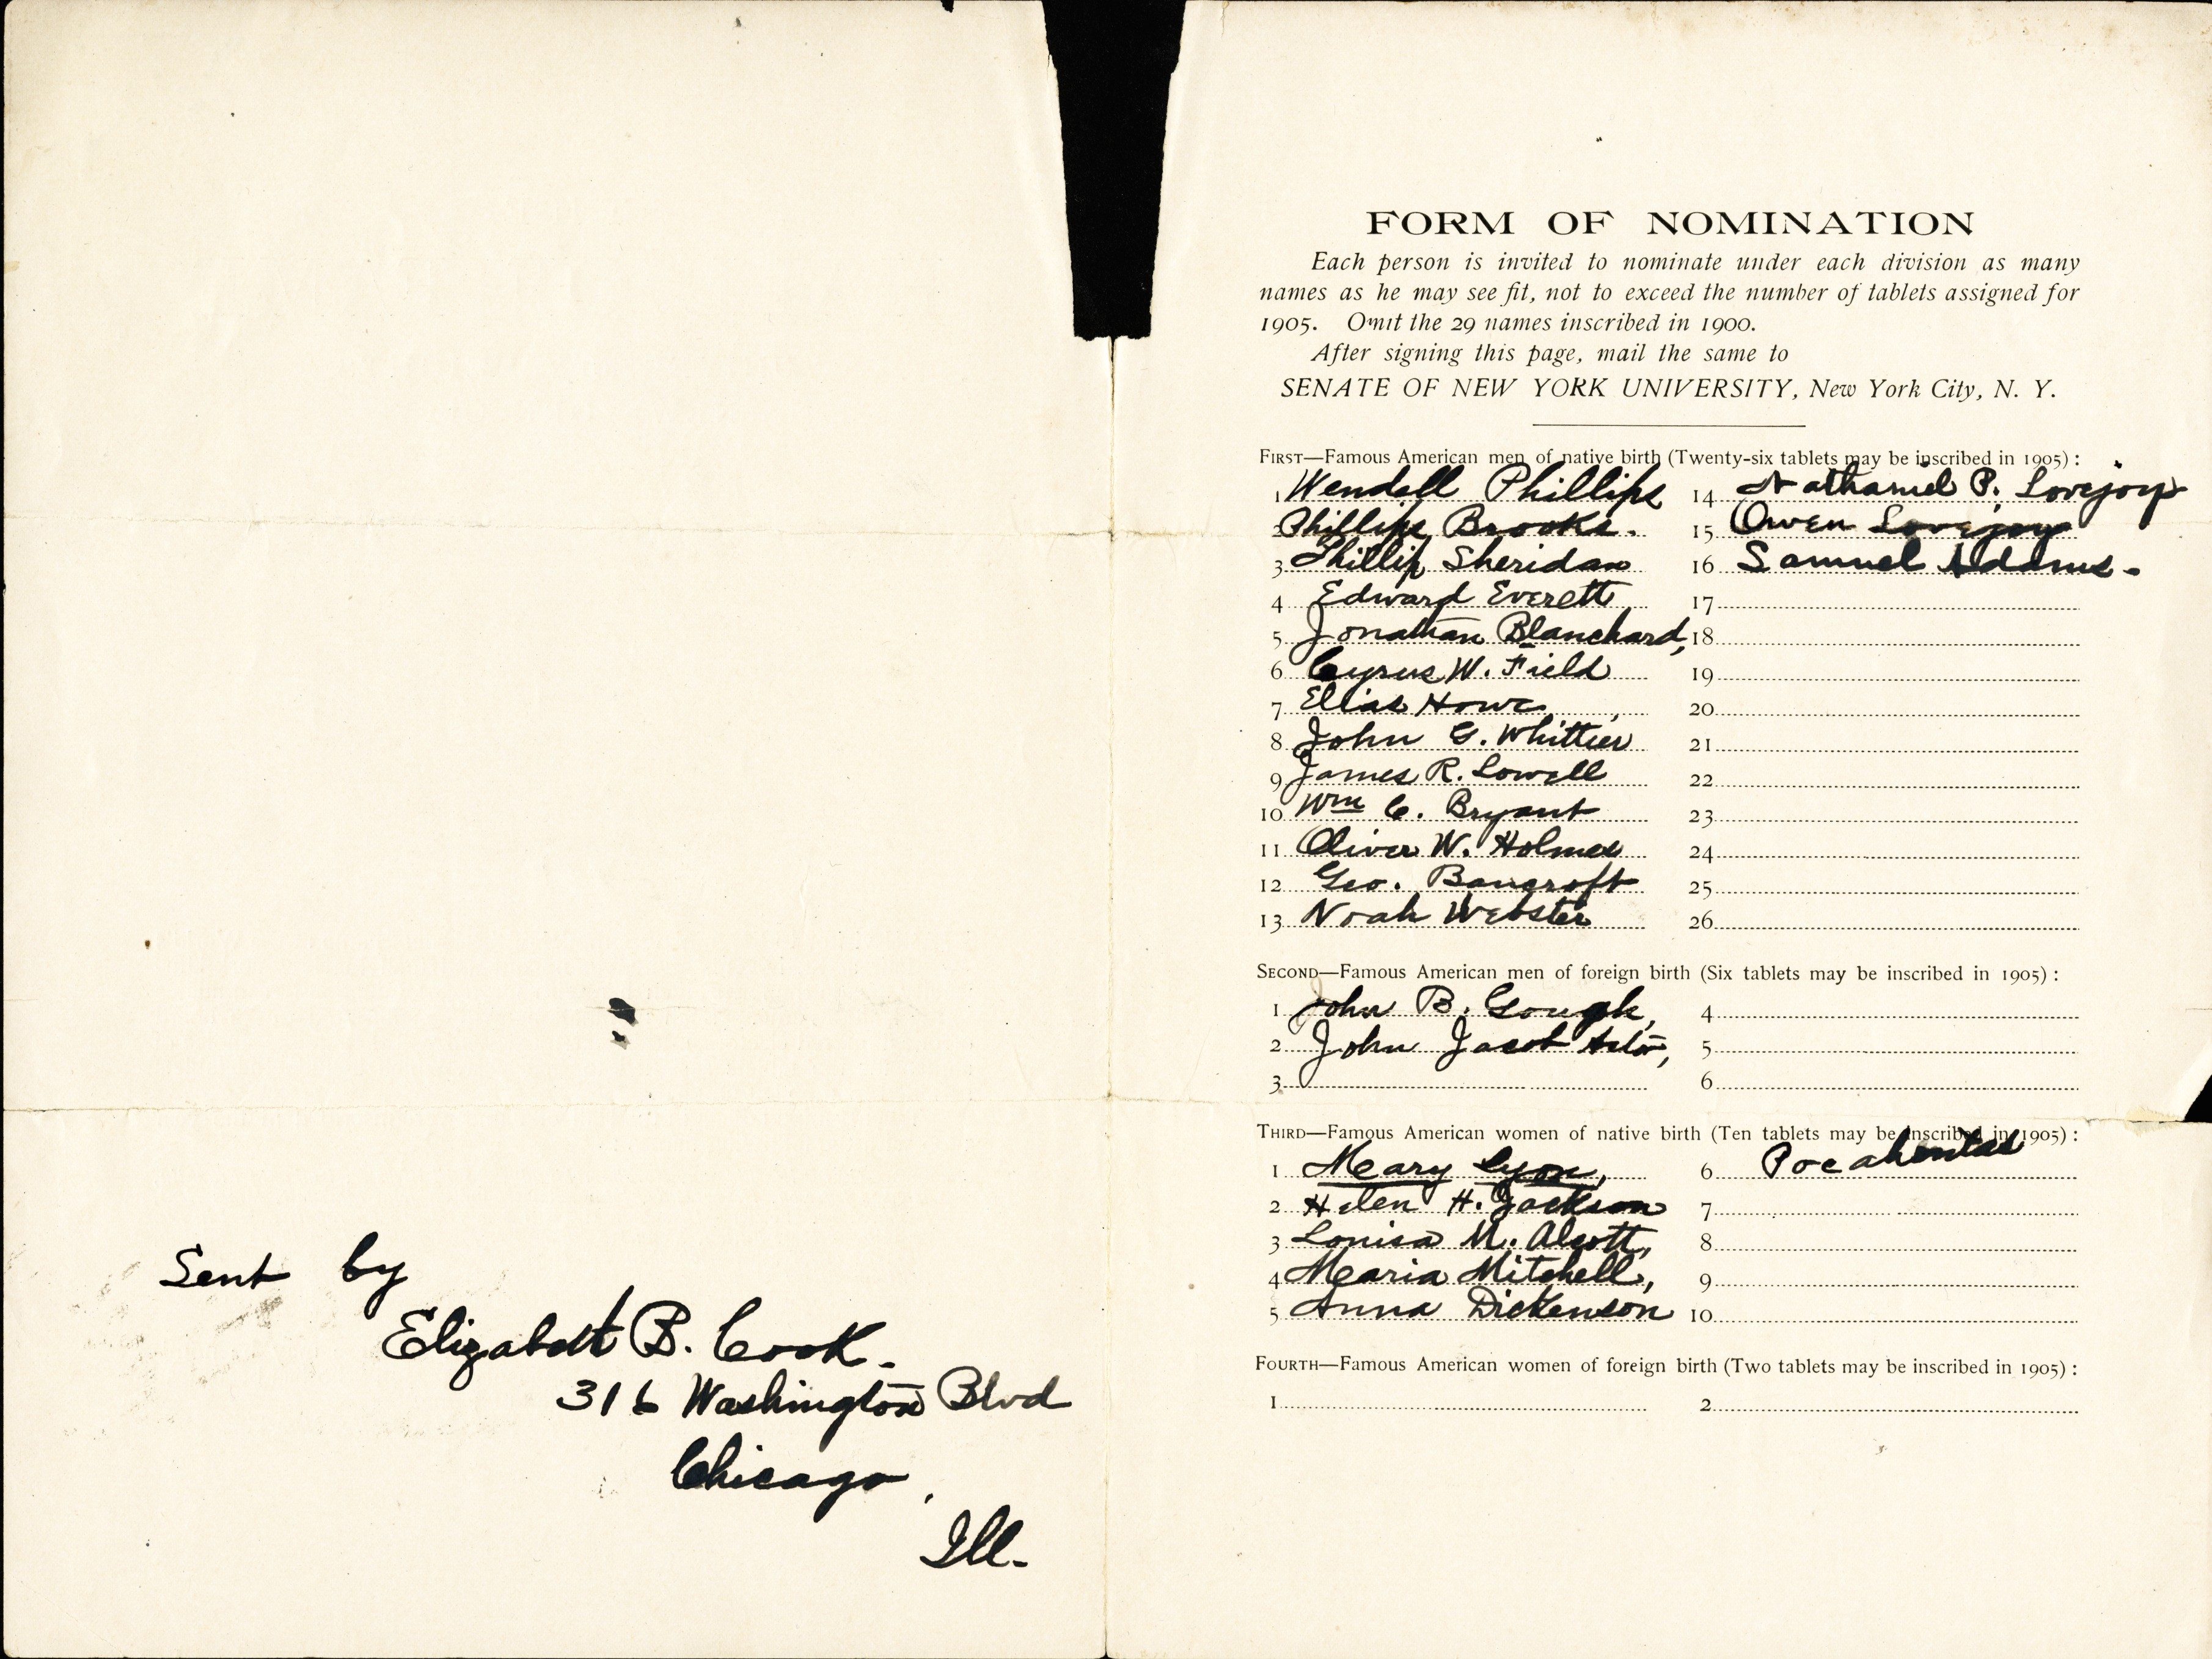 Sent by
Elizabeth B. Cook.
316 Washington Blvd
Chicago,
Ill.
FORM OF NOMINATION
Each person is invited to nominate under each division as many
names as he may see fit, not to exceed the number of tablets assigned for
1905. Omit the 29 names inscribed in 1900.
After signing this page, mail the same to
SENATE OF NEW YORK UNIVERSITY, New York City, N. Y.
FIRST—Famous American men of native birth (Twenty-six tablets may be inscribed in 1905):
1 Wendell Phillips
2 Phillips Brooks.
3 Phillip Sheridan
4 Edward Everett
5 Jonathan Blanchard,
6 Cyrus W. Field
7 Elias Howe
8 John G. Whittier
9 James R. Lowell
10 Wm C. Bryant
11 Oliver W. Holmes
12 Geo. Bancroft
13 Noah Webster
14 Nathaniel P. Lovejoy
15 Owen Lovejoy
16 Samuel Adams.
17
18
19
20
21
22
23
24
25
26
SECOND—Famous American men of foreign birth (Six tablets may be inscribed in 1905):
1 John B. Gough,
2 John Jacob Astor,
3
4
5
6
THIRD—Famous American women of native birth (Ten tablets may be inscribed in 1905):
1 Mary Lyon,
2 Helen H. Jackson
3 Louisa M. Alcott,
4 Maria Mitchell,
5 Anna Dickenson
6 Pocahontas
7
8
9
10
FOURTH—Famous American women of foreign birth (Two tablets may be inscribed in 1905):
1
2